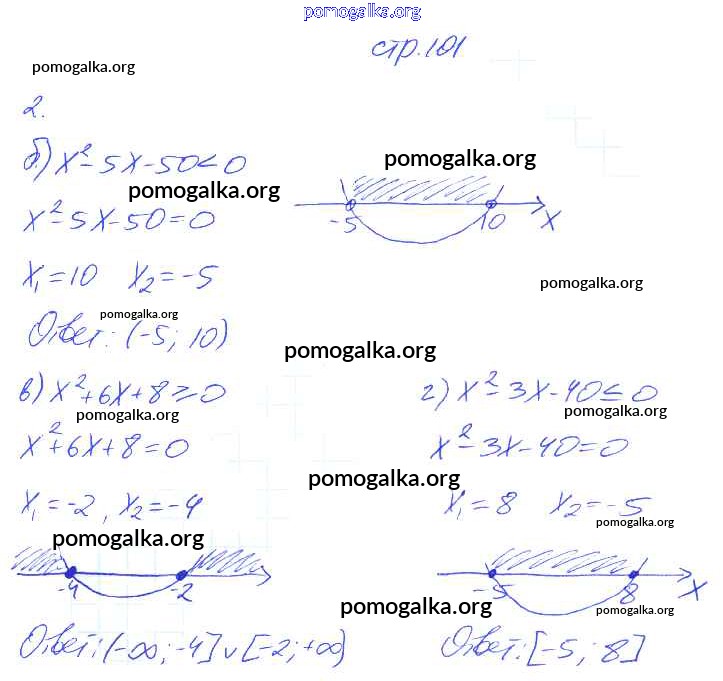 pomogalka.org
стр.101
pomogalka.org
2.
б) x²-5x-50<0
pomogalka.org
pomogalka.org
x²-5x-50=0
-5 10 x
x₁=10 x₂=-5
pomogalka.org
pomogalka.org
Ответ: (-5; 10)
pomogalka.org
в) x²+6x+8≥0
г) x²-3x-40≤0
pomogalka.org
pomogalka.org
x²+6x+8=0
x²-3x-40=0
pomogalka.org
x₁=-2, x₂=-4
x₁=8 x₂=-5
pomogalka.org
pomogalka.org
-4 -2
-5 8 x
pomogalka.org
pomogalka.org
Ответ: (-∞; -4]∪[-2; +∞)
Ответ: [-5; 8]